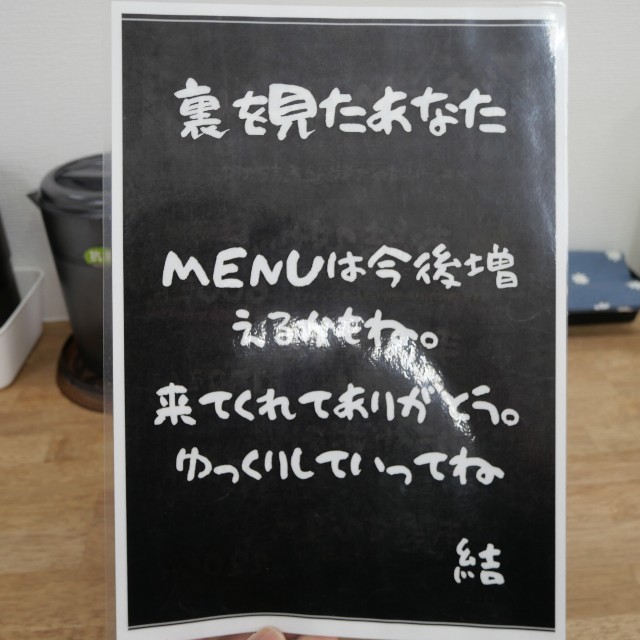 裏を見たあなた
MENUは今後増
えるかもね。
来てくれてありがとう。
ゆっくりしていってね
結